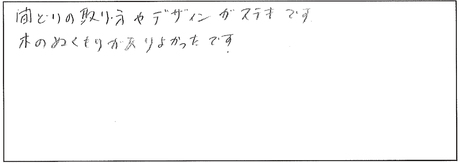 間どりの取り方やデザインがステキです
木のぬくもりがありよかったです。